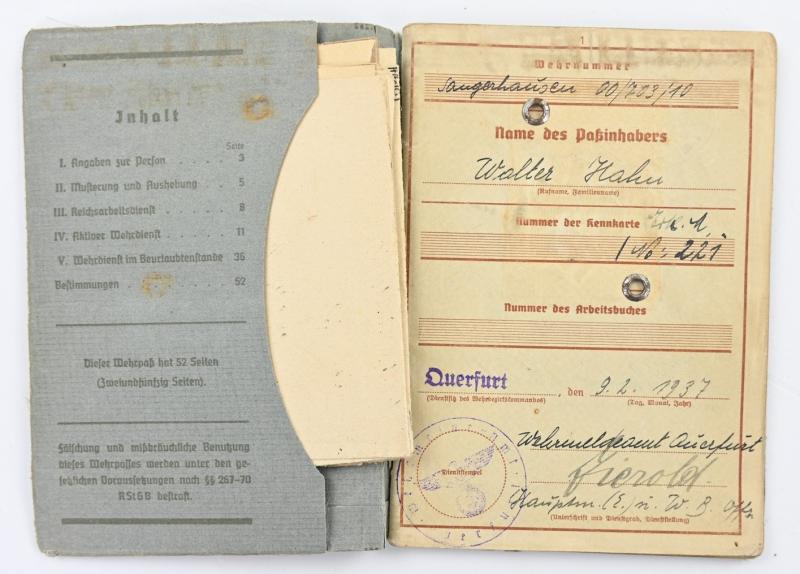 Inhalt
Seite
I. Angaben zur Person . . . . 3
II. Musterung und Aushebung . . 5
III. Reichsarbeitsdienst . . . . . 8
IV. Aktiver Wehrdienst . . . . 11
V. Wehrdienst im Beurlaubtenstande 36
Bestimmungen . . . . . 52
Dieser Wehrpaß hat 52 Seiten
(Zweiundfünfzig Seiten).
Fälschung und mißbräuchliche Benutzung
dieses Wehrpasses werden unter den ge-
setzlichen Voraussetzungen nach §§ 267–70
RStGB bestraft.
1
Wehrnummer
Sangerhausen 00/703/10
Name des Paßinhabers
Walter Hahn
(Rufname, Familienname)
Nummer der Kennkarte
No: 221
Nummer des Arbeitsbuches
Querfurt, den 9.2.1937
(Dienstsitz des Wehrbezirkskommandos) (Tag, Monat, Jahr)
Wehrmeldeamt Querfurt
Dienststempel
Hauptm. (E.) u. W. B. Offz.
(Unterschrift und Dienstgrad, Dienststellung)